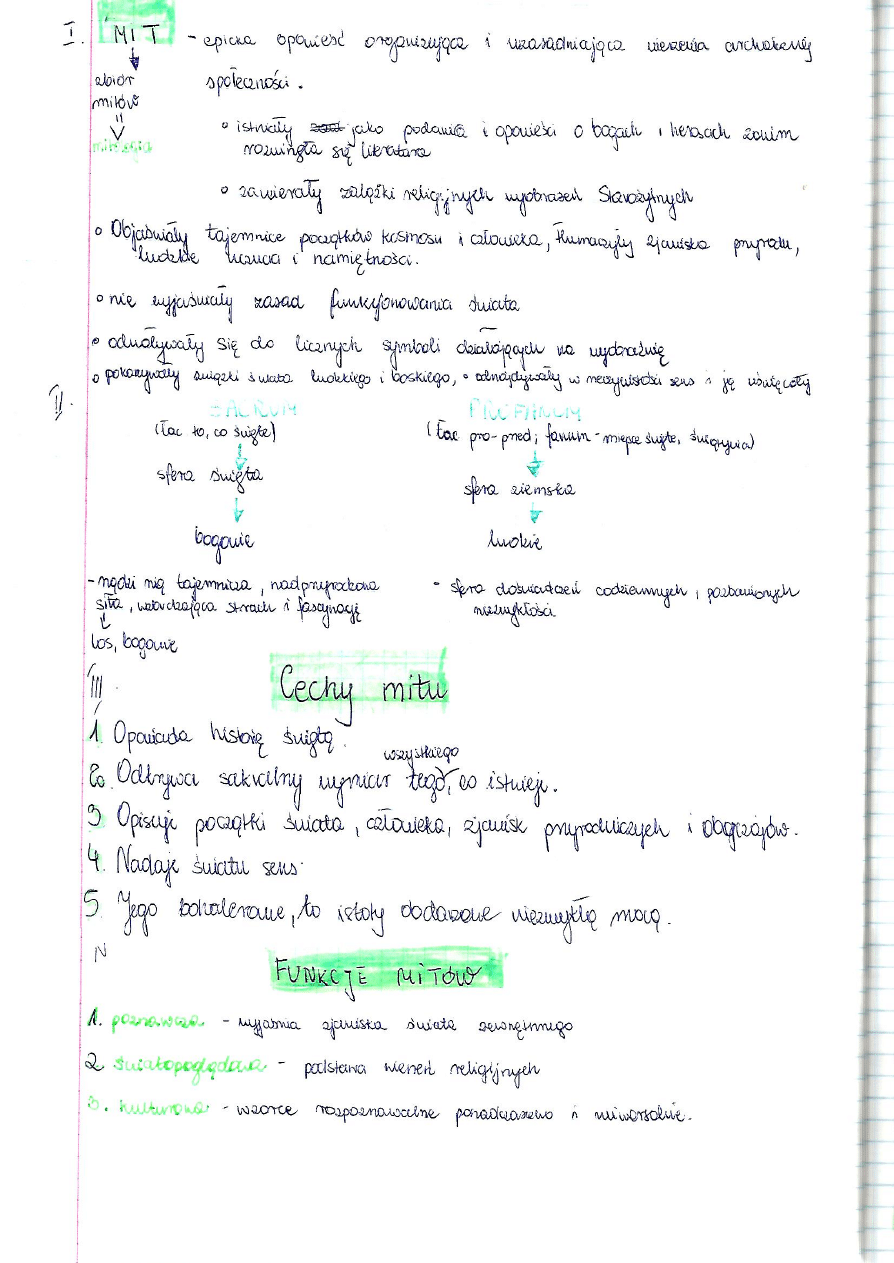 I. MIT - epicka opowieść organizująca i uzasadniająca wierzenia archaicznej
społeczności.
zbiór
mitów
mitologia
o istniały jako podania i opowieści o bogach i herosach zanim
rozwinęła się literatura
o zawierały zalążki religijnych wyobrażeń Starożytnych
o Objaśniały tajemnice początków kosmosu i człowieka, tłumaczyły zjawiska przyrody,
ludzkie uczucia i namiętności.
o nie wyjaśniały zasad funkcjonowania świata
o odwoływały się do licznych symboli działających na wyobraźnię
o pokazywały związki świata ludzkiego i boskiego, o odnajdywały w rzeczywistości sens i ją uświęcały
II.
SACRUM
PROFANUM
(łac to, co święte)
(łac pro-przed; fanum - miejsce święte, świątynia)
sfera święta
sfera ziemska
bogowie
ludzkie
- rządzi nią tajemnicza, nadprzyrodzona
siła, wzbudzająca strach i fascynację
los, bogowie
- sfera doświadczeń codziennych, pozbawionych
niezwykłości
III.
Cechy mitu
1. Opowiada historię świętą.
2. Odkrywa sakralny wymiar tego wszystkiego, co istnieje.
3 Opisuje początki świata, człowieka, zjawisk przyrodniczych i obyczajów.
4. Nadaje światu sens.
5. Jego bohaterowie, to istoty obdarzone niezwykłą mocą.
IV
FUNKCJE MITÓW
1. poznawcza - wyjaśnia zjawiska świata zewnętrznego
2. światopoglądowa - podstawa wierzeń religijnych
3. kulturowa - wzorce rozpoznawalne ponadczasowo i uniwersalnie.